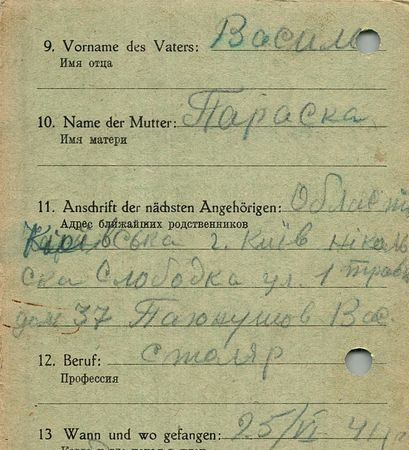 9. Vorname des Vaters: Василь
Имя отца
10. Name der Mutter: Параска
Имя матери
11. Anschrift der nächsten Angehörigen: Област
Адрес ближайших родственников
Київська г. Київ Нікаль
ска Слободка ул. 1 Трав
дом 37 Вас.
12. Beruf: Столяр
Профессия
13 Wann und wo gefangen: 25/VI 41